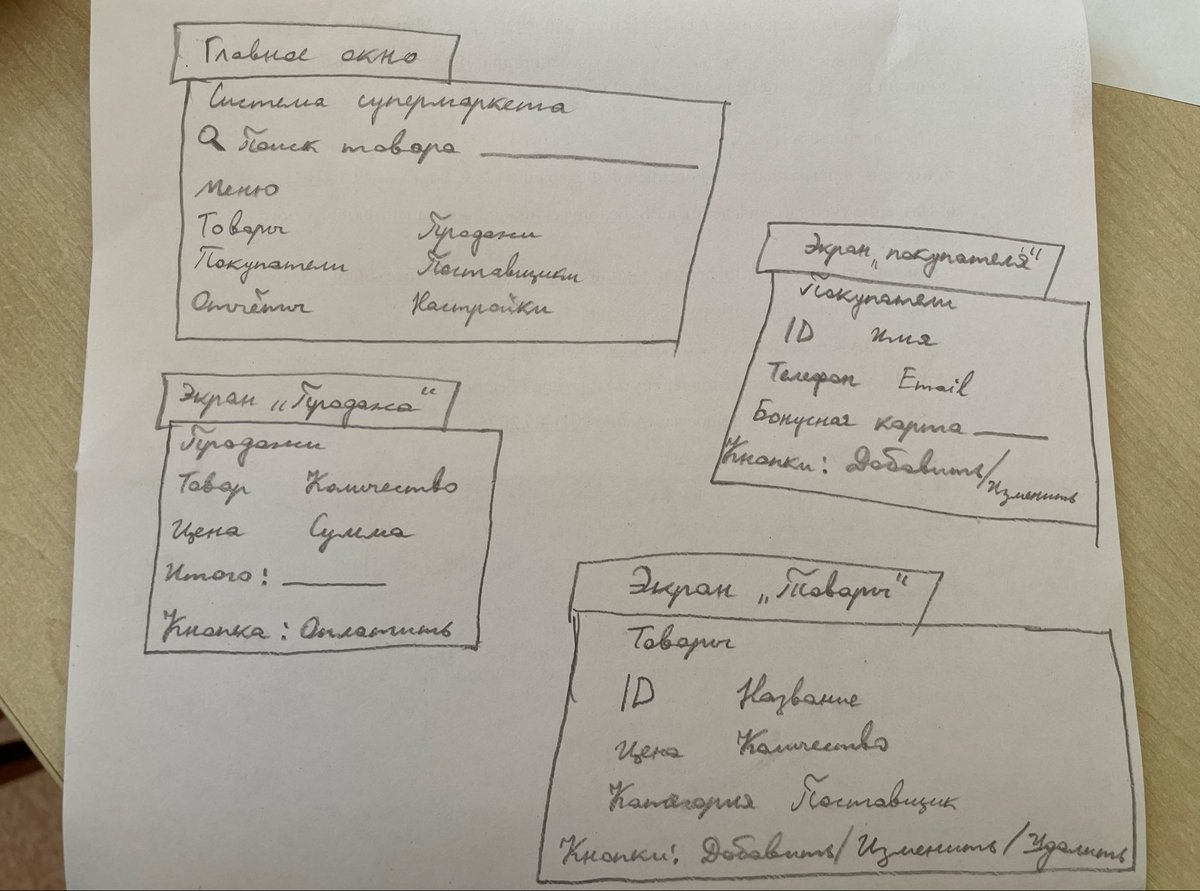 Главное окно
Система супермаркета
Поиск товара
Меню
Товары Продажи
Покупатели Поставщики
Отчёты Настройки
Экран „покупателя“
Покупатели
ID Имя
Телефон Email
Бонусная карта
Кнопки: Добавить/Изменить
Экран „Продажа“
Продажи
Товар Количество
Цена Сумма
Итого:
Кнопка: Оплатить
Экран „Товары“
Товары
ID Название
Цена Количество
Категория Поставщик
Кнопки: Добавить/Изменить/Удалить